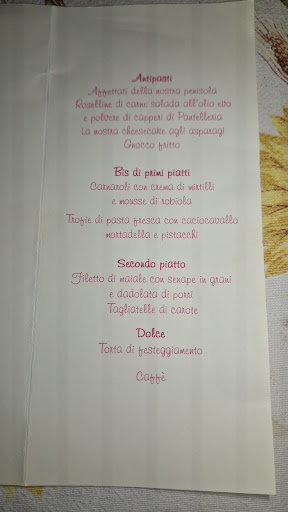 Antipasti
Affettati della nostra penisola
Roselline di carne salada all'olio evo
e polvere di capperi di Pantelleria
La nostra cheesecake agli asparagi
Gnocco fritto
Bis di primi piatti
Carnaroli con crema di mirtilli
e mousse di robiola
Trofie di pasta fresca con caciocavallo
mortadella e pistacchi
Secondo piatto
Filetto di maiale con senape in grani
e dadolata di porri
Tagliatelle di carote
Dolce
Torta di festeggiamento
Caffè